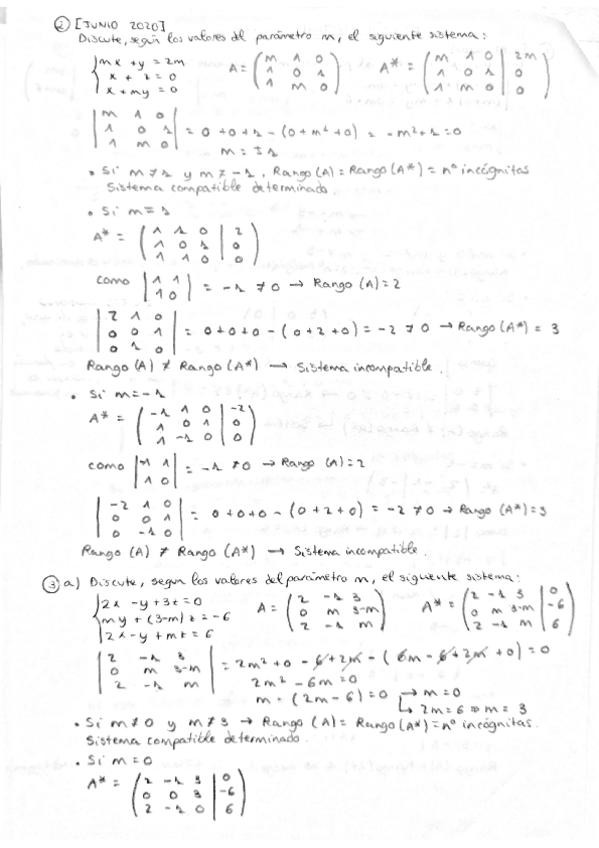 ② [JUNIO 2020]
Discute, según los valores del parámetro m, el siguiente sistema:
{ mx + y = 2m
x + z = 0
x + my = 0
A = ( m 1 0
1 0 1
1 m 0 )
A* = ( m 1 0 | 2m
1 0 1 | 0
1 m 0 | 0 )
| m 1 0
1 0 1
1 m 0 | = 0 + 0 + 1 - (0 + m² + 0) = -m² + 1 = 0
m = ± 1
• Si m ≠ 1 y m ≠ -1, Rango (A) = Rango (A*) = nº incógnitas
Sistema compatible determinado.
• Si m = 1
A* = ( 1 1 0 | 2
1 0 1 | 0
1 1 0 | 0 )
como | 1 1
1 0 | = -1 ≠ 0 → Rango (A) = 2
| 2 1 0
0 0 1
0 1 0 | = 0+0+0 - (0+2+0) = -2 ≠ 0 → Rango (A*) = 3
Rango (A) ≠ Rango (A*) → Sistema incompatible.
• Si m = -1
A* = ( -1 1 0 | -2
1 0 1 | 0
1 -1 0 | 0 )
como | -1 1
1 0 | = -1 ≠ 0 → Rango (A) = 2
| -2 1 0
0 0 1
0 -1 0 | = 0+0+0 - (0+2+0) = -2 ≠ 0 → Rango (A*) = 3
Rango (A) ≠ Rango (A*) → Sistema incompatible.
③ a) Discute, segun los valores del parámetro m, el siguiente sistema:
{ 2x - y + 3z = 0
my + (3-m) z = -6
2x - y + mz = 6
A = ( 2 -1 3
0 m 3-m
2 -1 m )
A* = ( 2 -1 3 | 0
0 m 3-m | -6
2 -1 m | 6 )
| 2 -1 3
0 m 3-m
2 -1 m | = 2m² + 0 - 6 + 2m - (6m - 6 + 2m + 0) = 0
2m² - 6m = 0
m · (2m - 6) = 0 → m = 0
↳ 2m = 6 ⇒ m = 3
• Si m ≠ 0 y m ≠ 3 → Rango (A) = Rango (A*) = nº incógnitas.
Sistema compatible determinado.
• Si m = 0
A* = ( 2 -1 3 | 0
0 0 3 | -6
2 -1 0 | 6 )